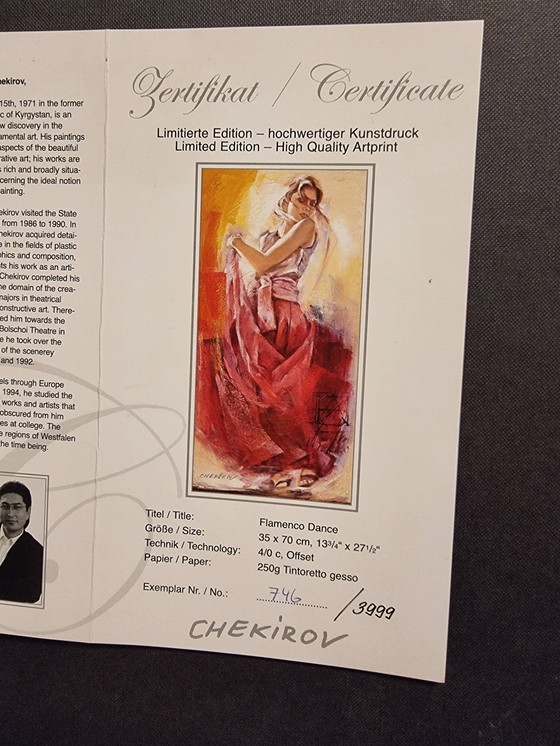 ekirov,
15th, 1971 in the former
c of Kyrgystan, is an
w discovery in the
amental art. His paintings
aspects of the beautiful
rative art; his works are
s rich and broadly situa-
cerning the ideal notion
ainting.
ekirov visited the State
from 1986 to 1990. In
hekirov acquired detai-
e in the fields of plastic
phics and composition,
ts his work as an arti-
Chekirov completed his
he domain of the crea-
majors in theatrical
onstructive art. There-
ed him towards the
Bolschoi Theatre in
e he took over the
of the scenerey
and 1992.
els through Europe
1994, he studied the
works and artists that
obscured from him
es at college. The
e regions of Westfalen
the time being.
Zertifikat / Certificate
Limitierte Edition – hochwertiger Kunstdruck
Limited Edition – High Quality Artprint
CHEKIROV
Titel / Title: Flamenco Dance
Größe / Size: 35 x 70 cm, 13³/₄" x 27¹/₂"
Technik / Technology: 4/0 c, Offset
Papier / Paper: 250g Tintoretto gesso
Exemplar Nr. / No.: 746 /3999
CHEKiROV